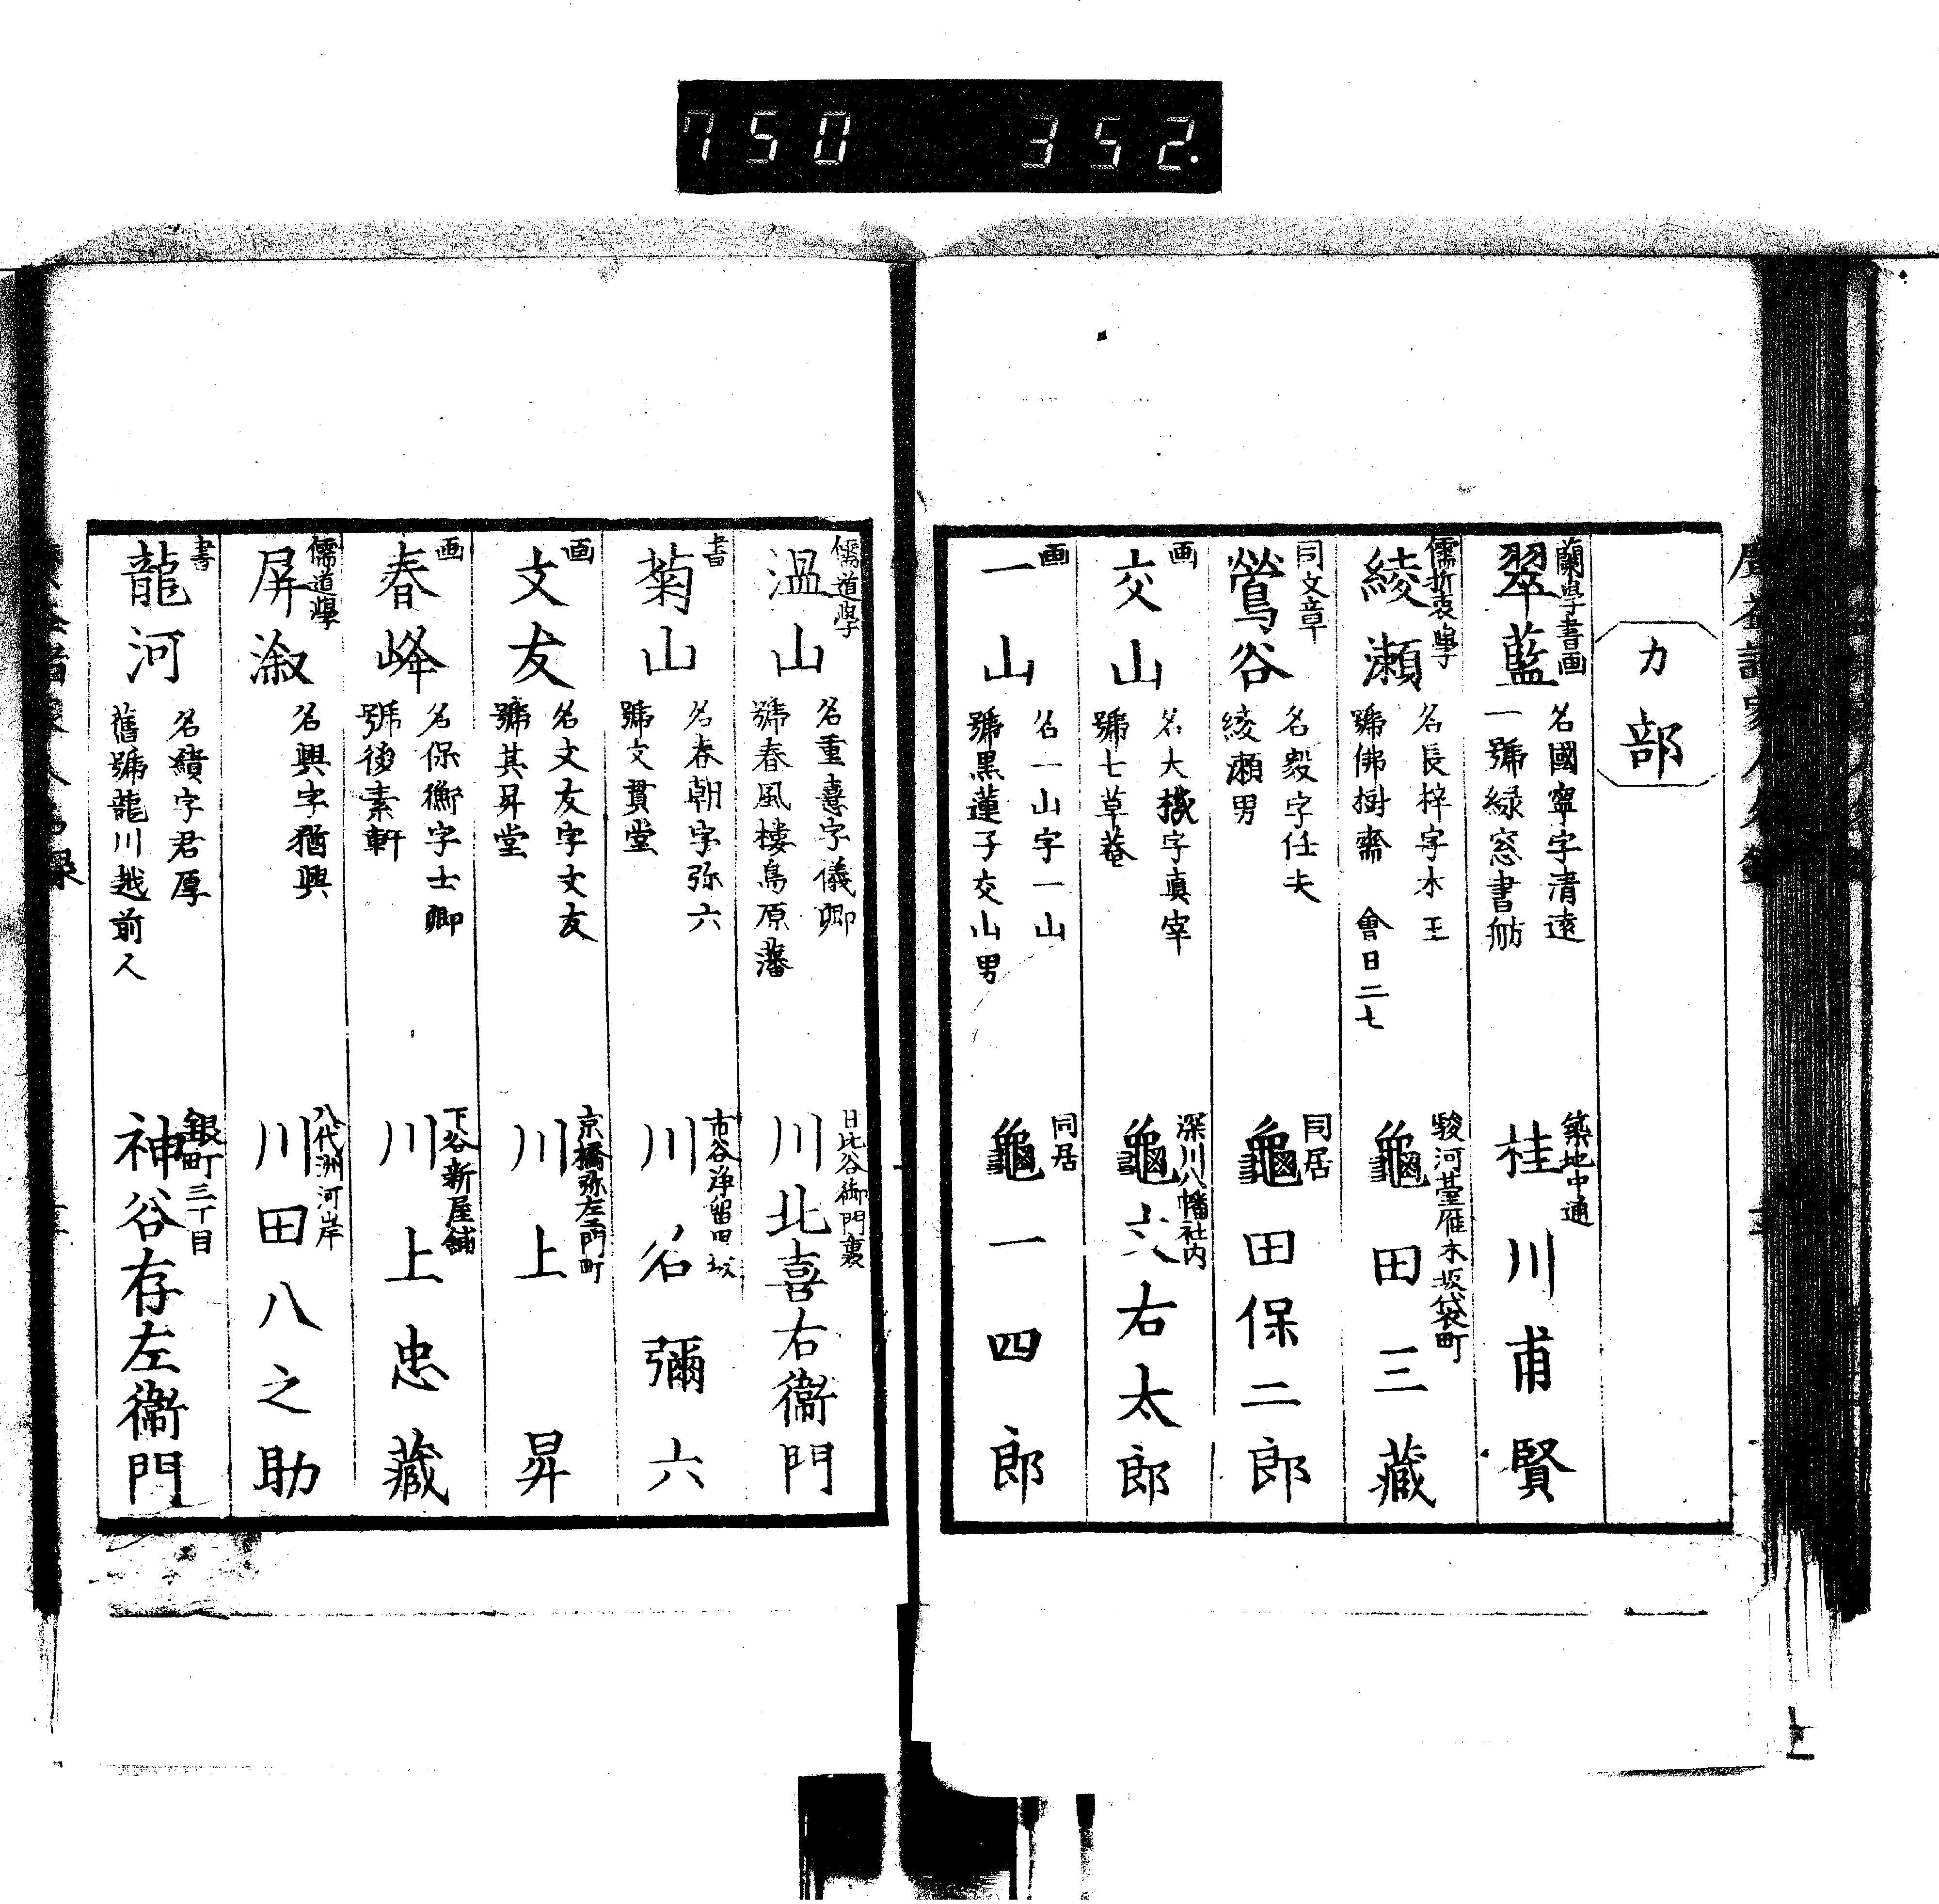 750 352.
カ部
蘭學書画
翠藍
名國寧字清遠
一號緑窓書舫
築地中通
桂川甫賢
儒折衷學
綾瀬
名長梓字木王
號佛樹齋 會日二七
駿河臺雁木坂袋町
龜田三藏
同文章
鶯谷
名毅字任夫
綾瀬男
同居
龜田保二郎
画
交山
名大機字真宰
號七草菴
深川八幡社内
龜六右太郎
画
一山
名一山字一山
號黒蓮子交山男
同居
龜一四郎
儒道學
温山
名重憙字儀卿
號春風樓島原藩
日比谷御門裏
川北喜右衞門
書
菊山
名春朝字弥六
號文貫堂
市谷浄留田坂
川名彌六
画
文友
名文友字文友
號其昇堂
京橋弥左エ門町
川上昇
画
春峰
名保衡字士卿
號後素軒
下谷新屋舗
川上忠藏
儒道學
屏溆
名興字猶興
八代洲河岸
川田八之助
書
龍河
名績字君厚
舊號龍川越前人
銀町三丁目
神谷存左衞門